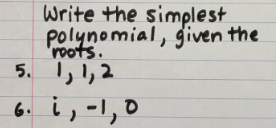 Write the simplest
polynomial, given the
roots.
5. 1, 1, 2
6. i, -1, 0